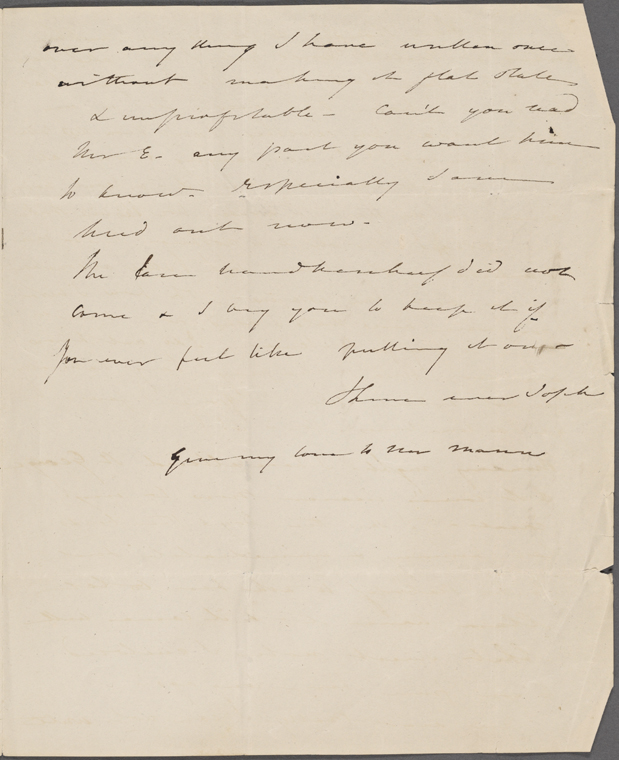 over any thing I have written once
without making it flat stale
& unprofitable - Can't you read
Mr E. any part you want him
to know - especially I am
tired out now -
The lace handkerchief did not
come & I beg you to keep it if
you ever feel like putting it on -
Thine ever Soph
Give my love to Mrs Mann